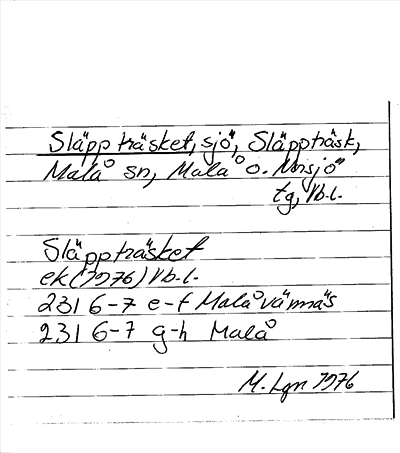 Släppträsket, sjö, Släppträsk,
Malå sn, Malå o. Norsjö
tg, Vb.l.
Släppträsket
ek (1976) Vb.l.
231 6-7 e-f Malåvännäs
231 6-7 g-h Malå
M. Lgn 1976